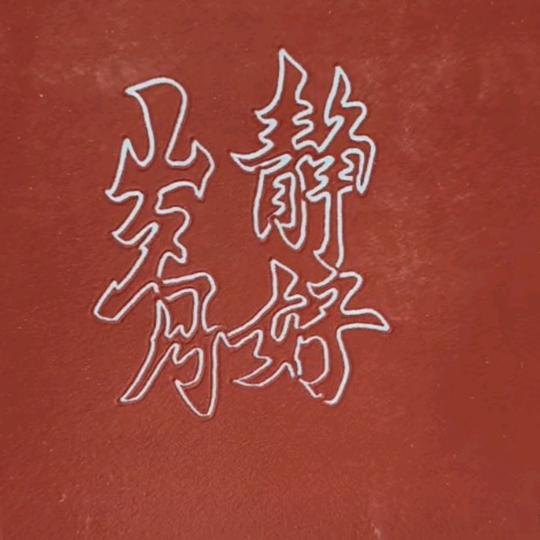 静好
岁月